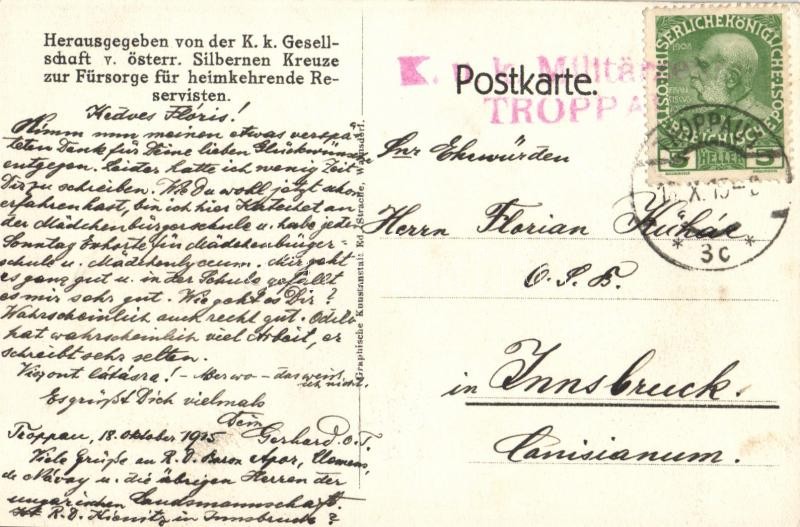 Herausgegeben von der K. k. Gesell-
schaft v. österr. Silbernen Kreuze
zur Fürsorge für heimkehrende Re-
servisten.
Kedves Flóris!
Nimm nun meinen etwas verspä-
teten Dank für Deine lieben Glückwünsche
entgegen. Leider hatte ich wenig Zeit
Dir zu schreiben. Wie Du wohl jetzt schon
erfahren hast, bin ich hier Katechet an
der Mädchenbürgerschule u. habe jeden
Sonntag Exhorte für Mädchenbürger-
schule u. Mädchenlyceum. Mir geht
es ganz gut u. in der Schule gefällt
es mir sehr gut. Wie geht es Dir?
Wahrscheinlich auch recht gut. Odilo
hat wahrscheinlich viel Arbeit, er
schreibt sehr selten.
Viszont látásra! - Aber wo - das weiß
ich nicht.
Es grüßt Dich vielmals
Dein
Gerhard O.T.
Troppau, 18. Oktober 1915
Viele Grüße an R. D. Baron Apor, Clemens,
de Návay u. die übrigen Herren der
ungarischen Landsmannschaft.
R. D. Kienitz in Innsbruck?
Graphische Kunstanstalt Ed. Strache, Warnsdorf.
K. u. k. Militär
TROPPA
Postkarte.
Sr Ehrwürden
Herrn Florian Kühár
O. S. B.
in Innsbruck.
Canisianum.
1908
5 HELLER 5
TROPPAU
X. 15
* 3c *